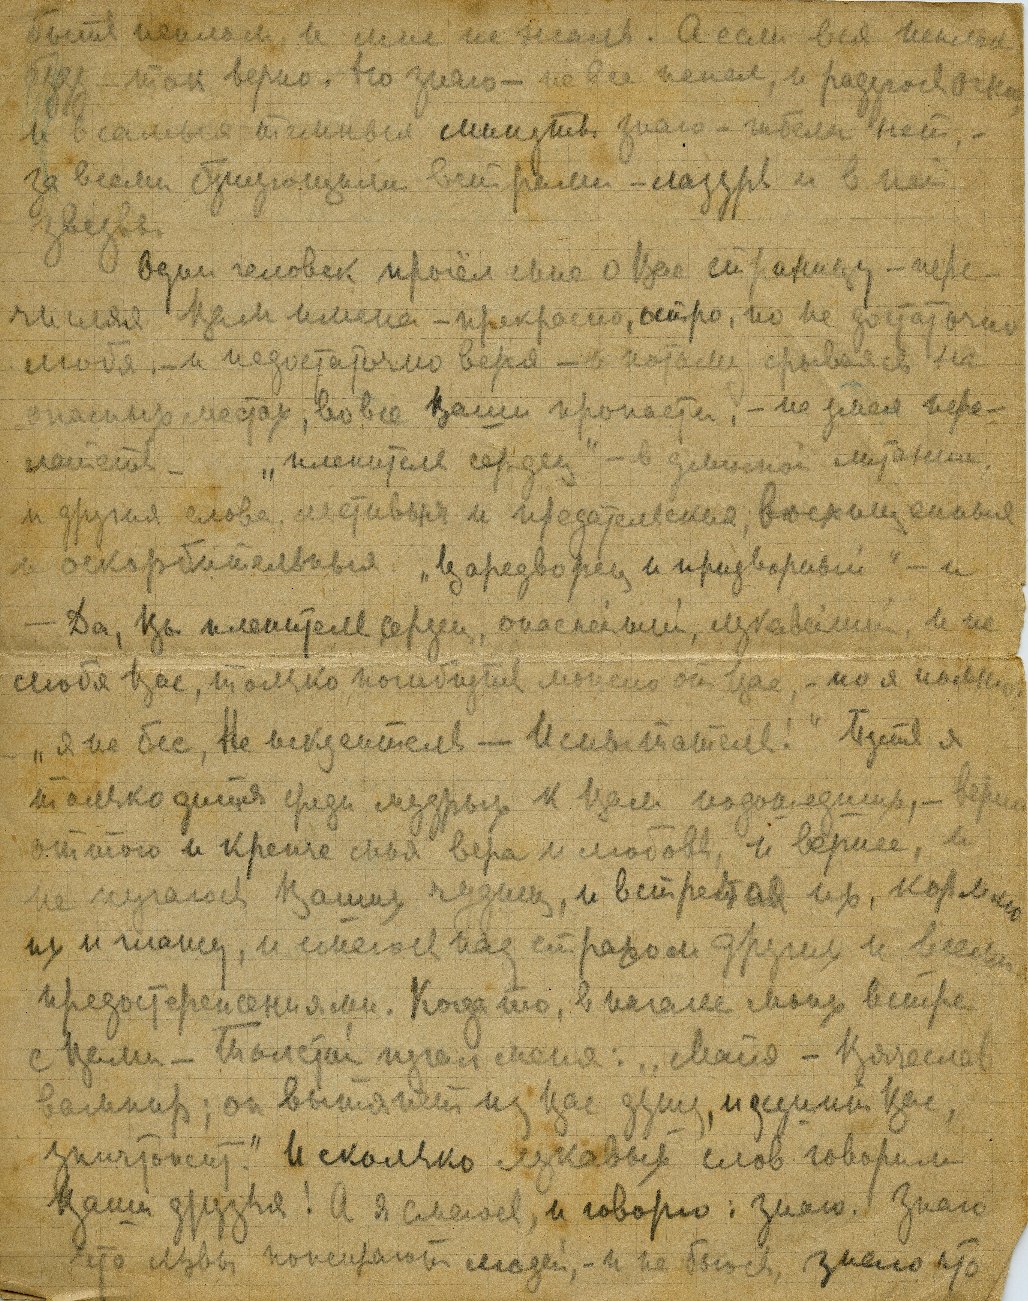 быть пеплом, и мне не жаль. А если вся пеплом
буду — так верно. Но знаю — не все пепел, и радуюсь огню,
и в самыя темныя минуты знаю — гибели нет, —
за всеми бушующими ветрами — лазурь и в ней
звезды.
Один человек прочёл мне о Вас страницу — пере-
числяя Вам имена — прекрасно, остро, но не достаточно
любя, — и недостаточно веря — и потому срываясь на
опасных местах, во все Ваши пропасти, — не умея пере-
лететь — „пленитель сердец" — в длинной литании
и другия слова, льстивыя и предательския, восхищенныя
и оскорбительныя. „Царедворец и придворный" — и
— Да, Вы пленитель сердец, опаснейший, лукавейший, и не
любя Вас, только погибнуть можно от Вас, — но я помню:
„я не бес, Не искуситель — Испытатель!" Пусть я
только дитя среди мудрых к Вам подошедших, — верно
оттого и крепче моя вера и любовь, и вернее, и
не пугаюсь Ваших чудищ, и встречая их, кормлю
их и глажу, и смеюсь над страхом других и всеми
предостережениями. Когда то, в начале моих встреч
с Вами — Толстой пугал меня: „Майя — Вячеслав
вампир; он вытянет из Вас душу, и сушит Вас,
уничтожит." И сколько лукавых слов говорили
Ваши друзья! А я смеюсь, и говорю: знаю. Знаю
что львы пожирают людей, — и не боюсь, знаю что